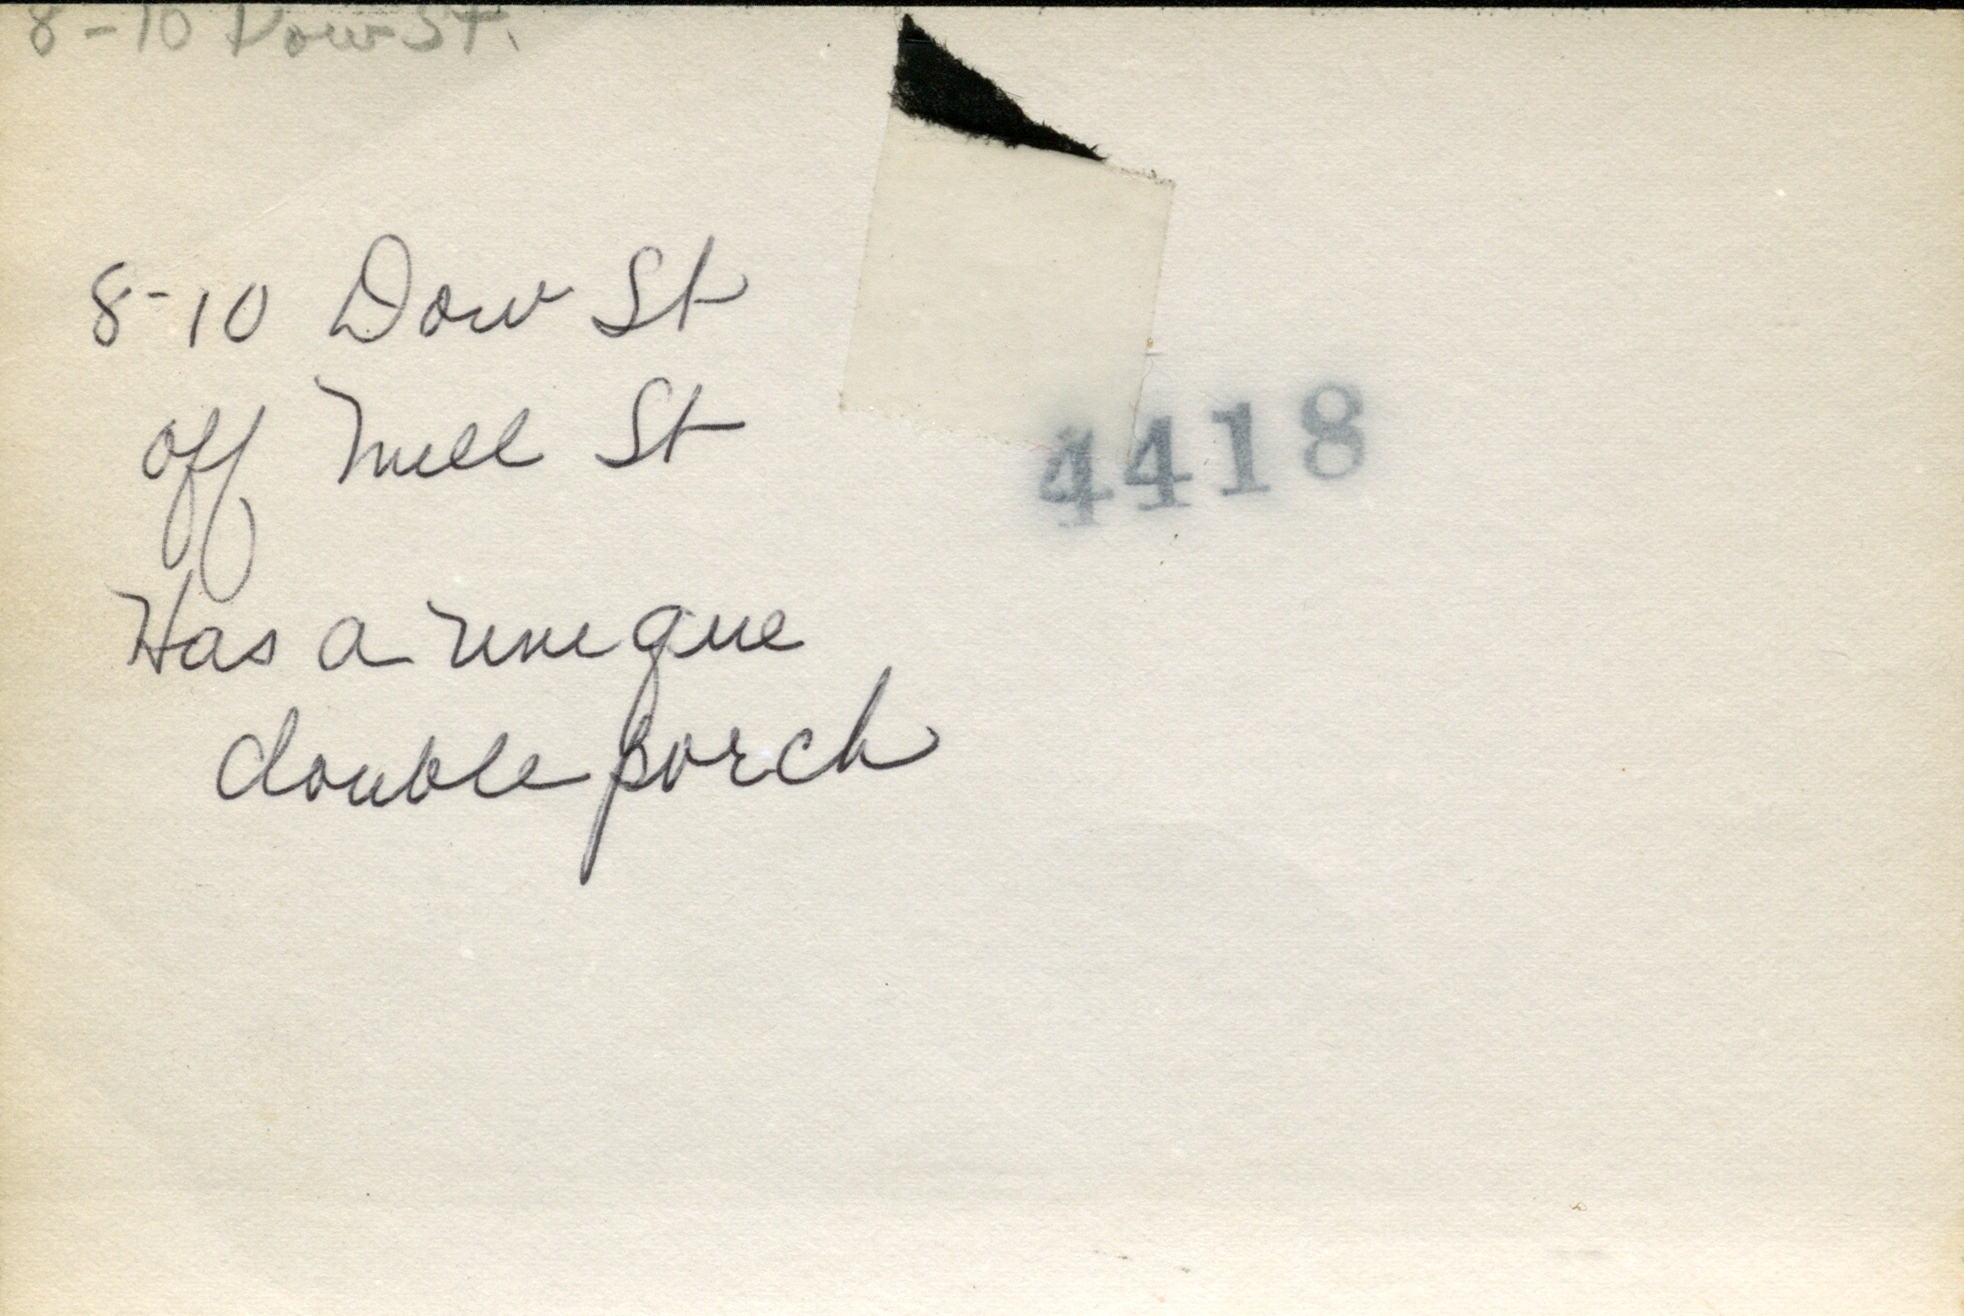 8-10 Dow St.
8-10 Dow St
off Mill St
4418
Has a unique
double porch